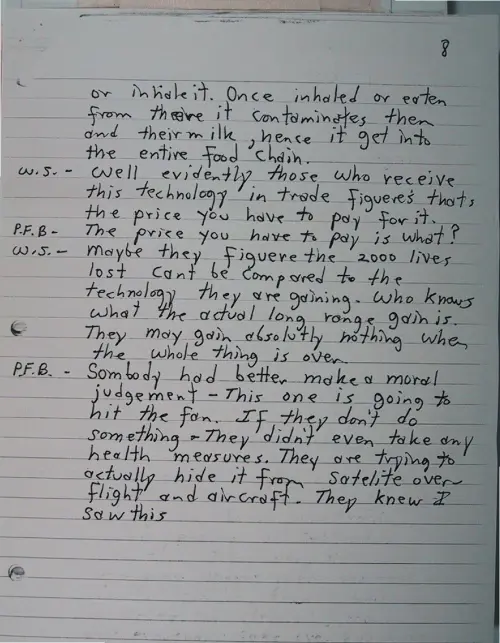 8
or inhale it. Once inhaled or eaten
from there it contaminates them
and their milk, hence it get into
the entire food chain.
W.S. - Well evidently those who receive
this technology in trade figuere's thats
the price you have to pay for it.
P.F.B - The price you have to pay is what?
W.S. - Maybe they figuere the 2000 lives
lost cant be compared to the
technology they are gaining. Who knows
what the actual long range gain is.
They may gain absolutly nothing when
the whole thing is over.
P.F.B. - Sombody had better make a moral
judgement - This one is going to
hit the fan. If they don't do
something - They didn't even take any
health measures. They are trying to
actually hide it from satelite over
flight and aircraft. They knew I
saw this